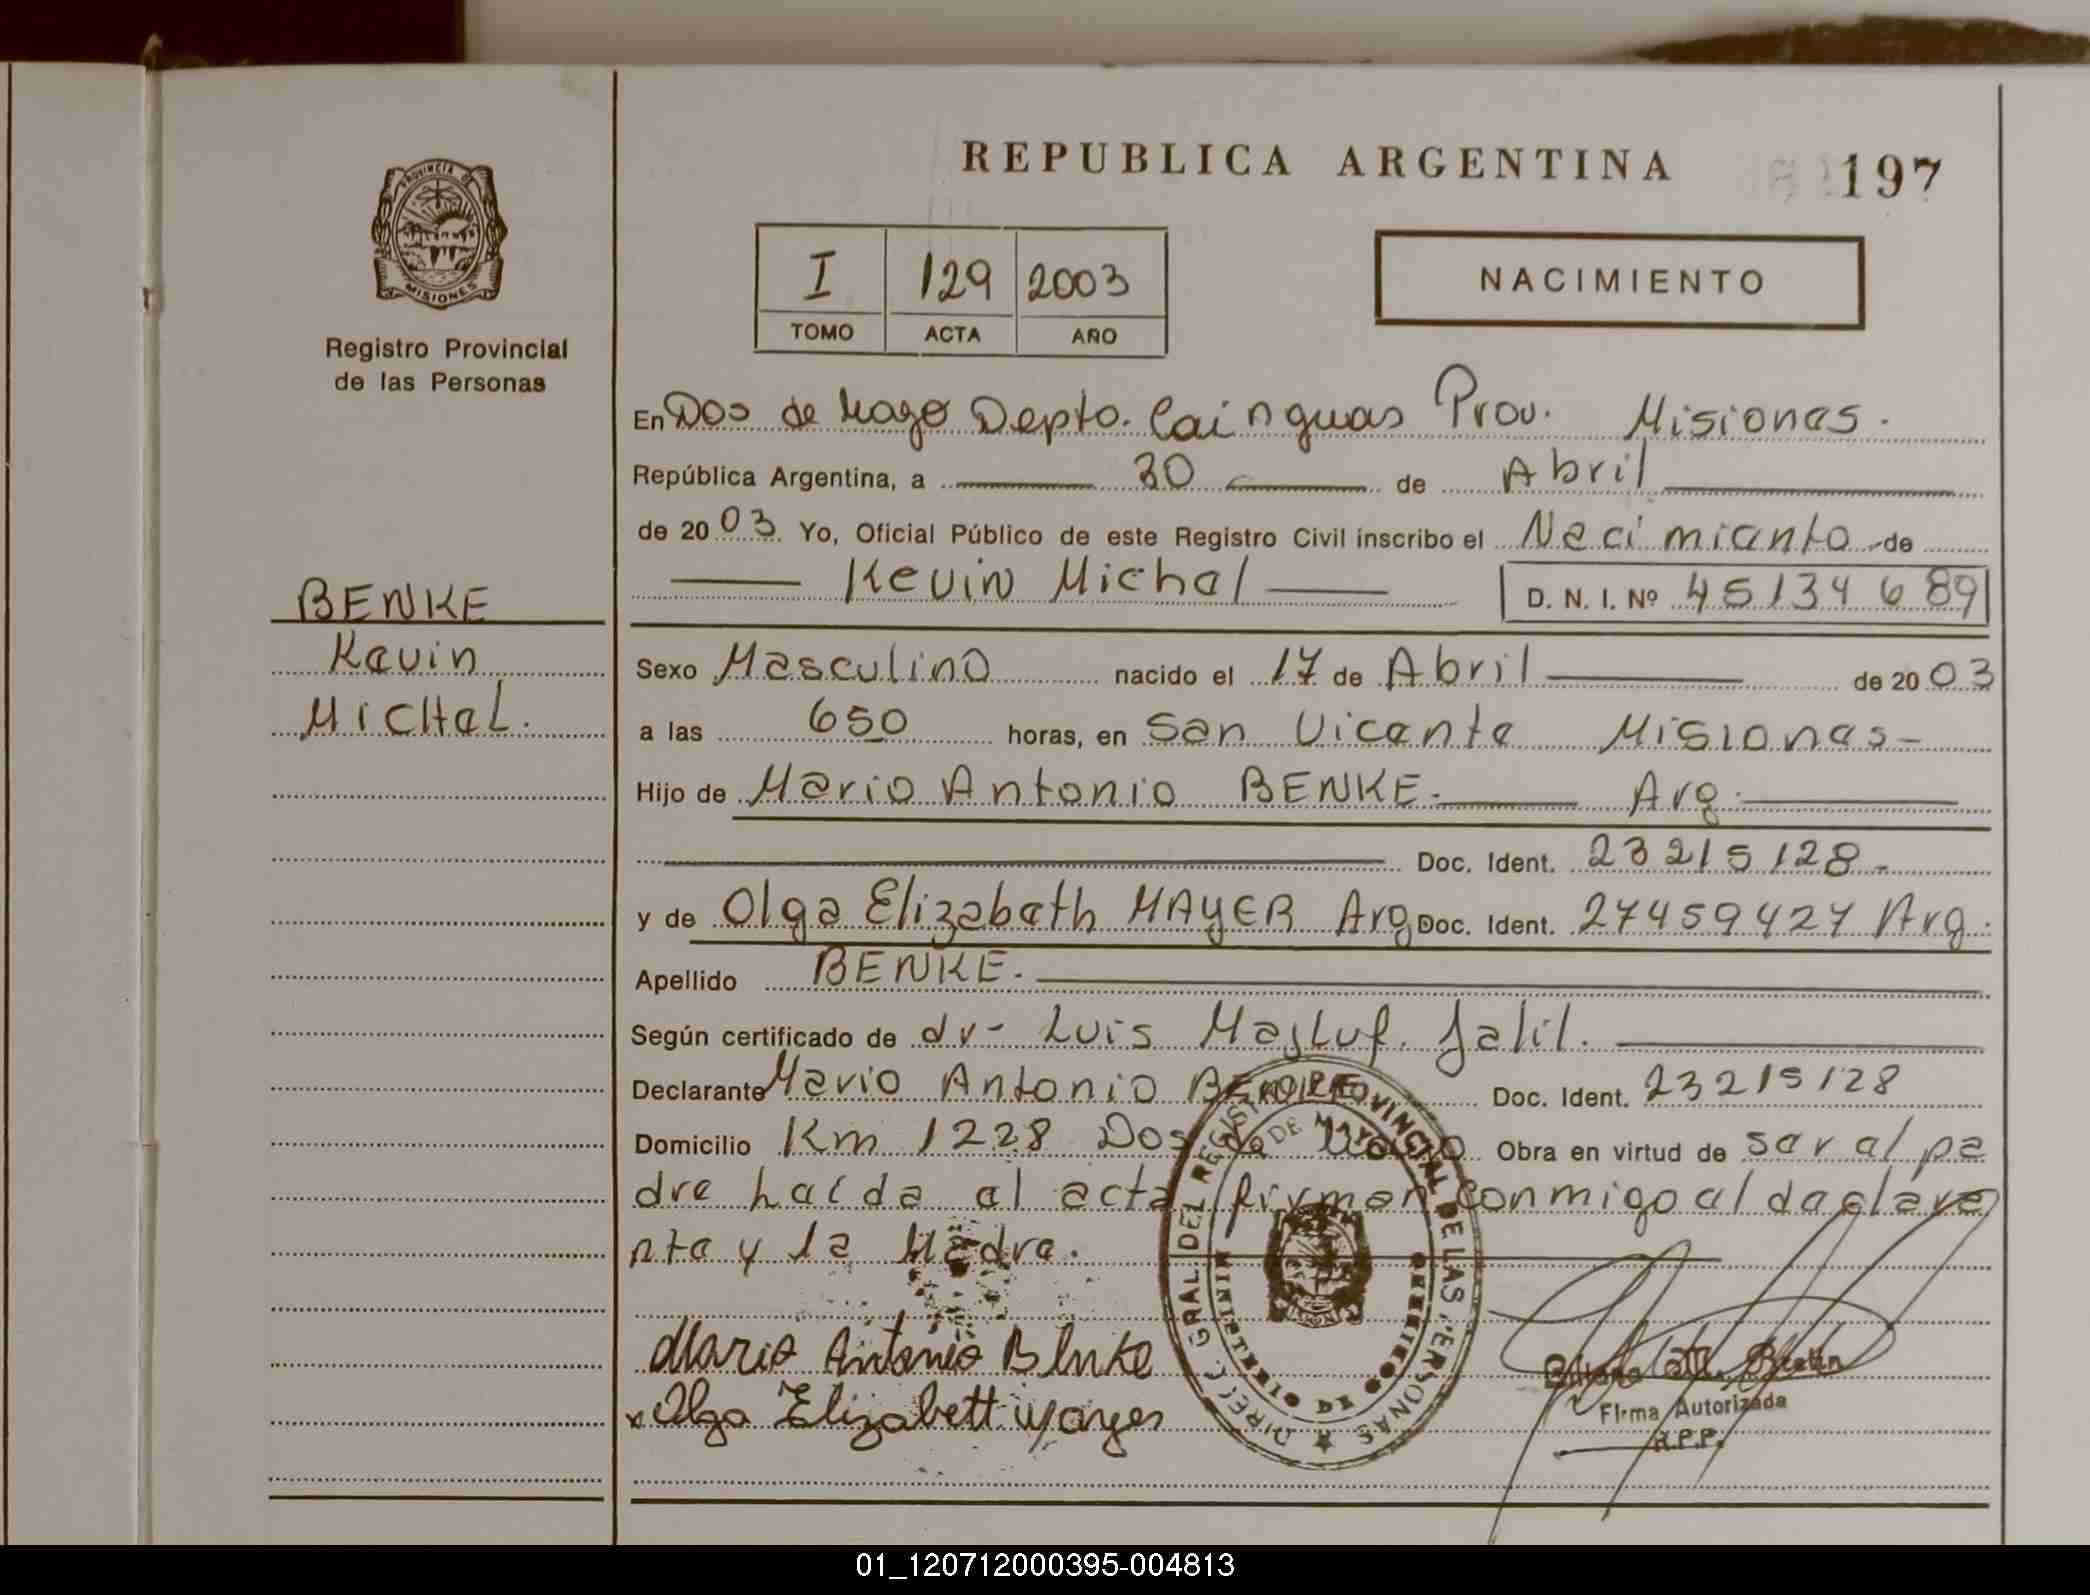 REPUBLICA ARGENTINA 197
PROVINCIA DE MISIONES
Registro Provincial
de las Personas
I 129 2003
TOMO ACTA AÑO
NACIMIENTO
En Dos de Mayo Depto. Cainguas Prov. Misiones.
República Argentina, a 30 de Abril
de 2003 Yo, Oficial Público de este Registro Civil inscribo el Nacimiento de
Kevin Michel D. N. I. Nº 45134689
BENKE
Kevin
MICHeL.
Sexo Masculino nacido el 17 de Abril de 2003
a las 650 horas, en San Vicente Misiones-
Hijo de Mario Antonio BENKE. Arg.
Doc. Ident. 23215128-
y de Olga Elizabeth MAYER Arg Doc. Ident. 27459427 Arg.
Apellido BENKE.
Según certificado de dr- Luis Majluf. Jalil.
Declarante Mario Antonio BENKE Doc. Ident. 23215128
Domicilio Km 1228 Dos de Mayo Obra en virtud de ser el pa
dre leida el acta firman conmigo el declara
nte y la Madre.
Mario Antonio Benke
Olga Elizabett Mayer
DIRECC. GRAL DEL REGISTRO PROVINCIAL DE LAS PERSONAS
DE MAYO
MINISTERIO DE GOBIERNO
Firma Autorizada
R.P.P.
01_120712000395-004813